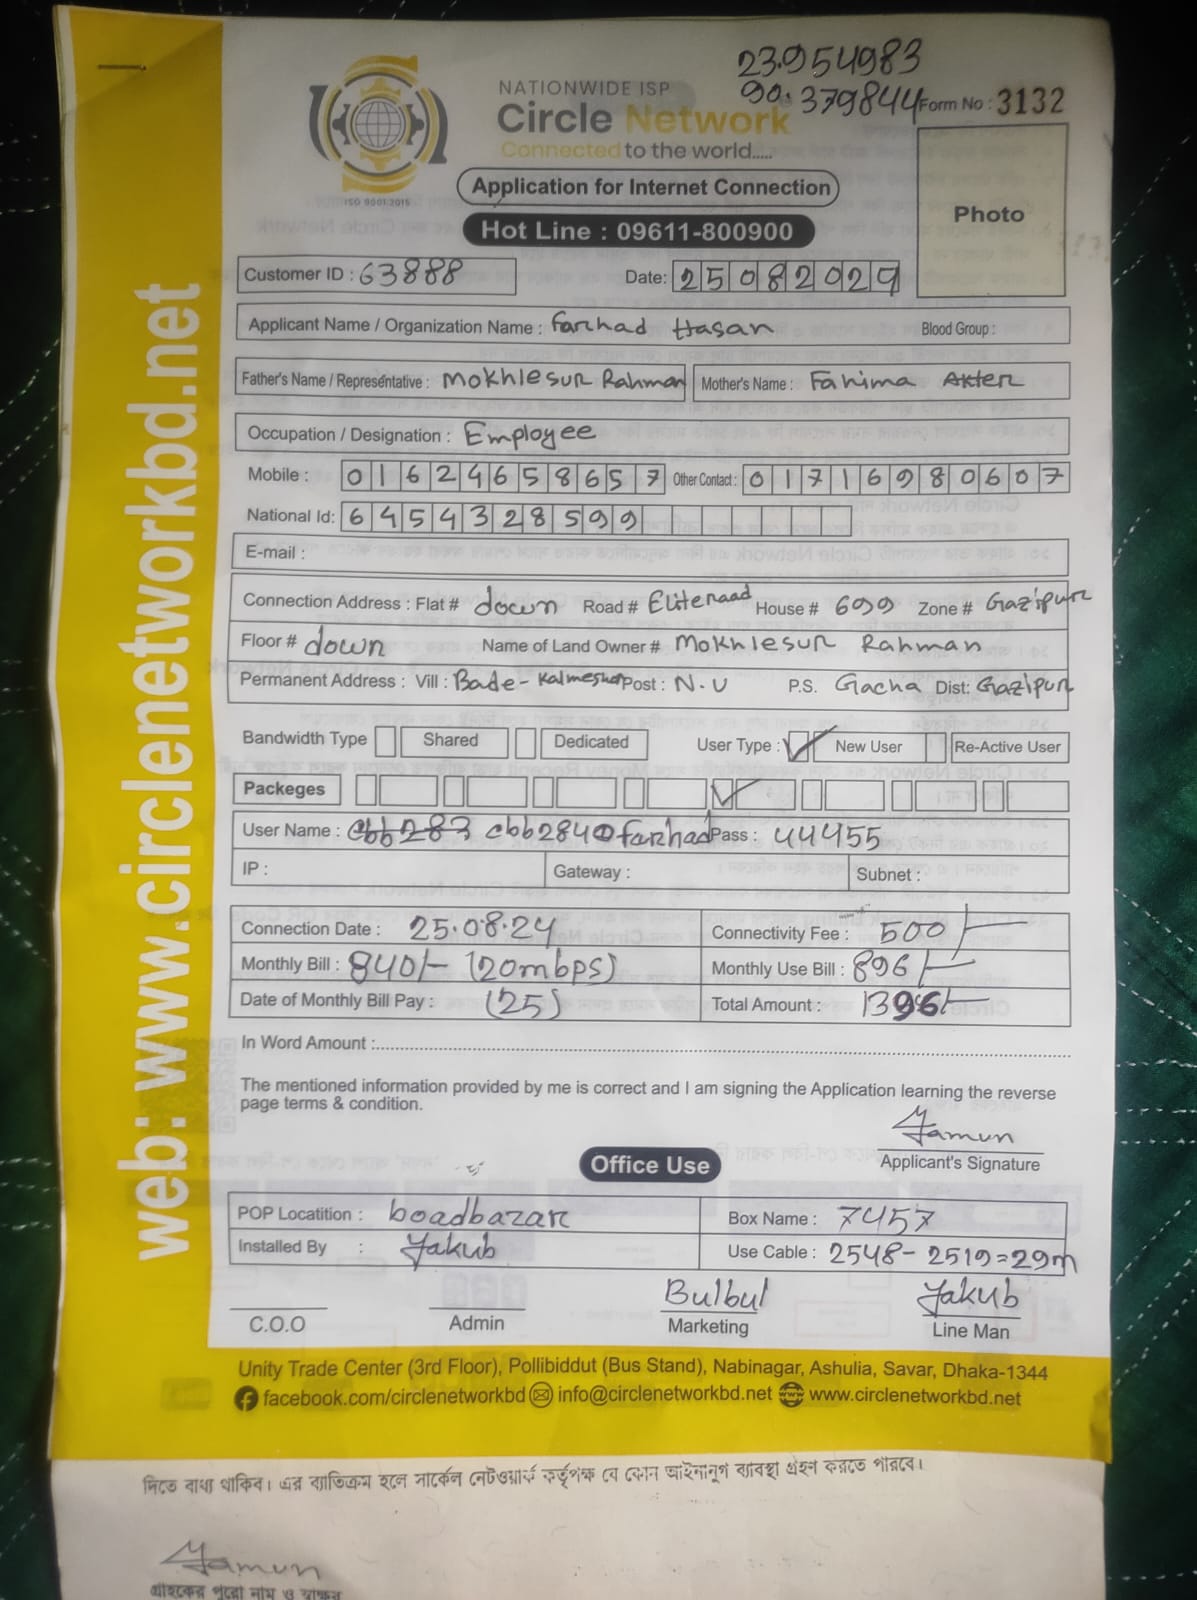 23.954983
90.379844
NATIONWIDE ISP
Circle Network
Connected to the world.....
ISO 9001:2015
Form No : 3132
Photo
Application for Internet Connection
Hot Line : 09611-800900
Customer ID : 63888 Date: 25082024
Applicant Name / Organization Name : Farhad Hasan Blood Group :
Father's Name / Representative : Mokhlesur Rahman Mother's Name : Fahima Akter
Occupation / Designation : Employee
Mobile : 01624658657 Other Contact : 01716980607
National Id: 6454328599
E-mail :
Connection Address : Flat # down Road # Eliteroad House # 699 Zone # Gazipur
Floor # down Name of Land Owner # Mokhlesur Rahman
Permanent Address : Vill : Bade-Kalmeshor Post : N.U P.S. Gacha Dist: Gazipur
Bandwidth Type Shared Dedicated User Type : New User Re-Active User
Packeges
User Name : cbb283 cbb284@farhad Pass : 44455
IP : Gateway : Subnet :
Connection Date : 25.08.24 Connectivity Fee : 500/-
Monthly Bill : 840/- (20mbps) Monthly Use Bill : 896/-
Date of Monthly Bill Pay : (25) Total Amount : 1396/-
In Word Amount :
The mentioned information provided by me is correct and I am signing the Application learning the reverse
page terms & condition.
Applicant's Signature
Office Use
POP Locatition : boadbazar Box Name : 7457
Installed By : Yakub Use Cable : 2548-2519=29m
Bulbul Yakub
C.O.O Admin Marketing Line Man
Unity Trade Center (3rd Floor), Pollibiddut (Bus Stand), Nabinagar, Ashulia, Savar, Dhaka-1344
facebook.com/circlenetworkbd info@circlenetworkbd.net www.circlenetworkbd.net
web: www.circlenetworkbd.net
দিতে বাধ্য থাকিব। এর ব্যতিক্রম হলে সার্কেল নেটওয়ার্ক কর্তৃপক্ষ যে কোন আইনানুগ ব্যাবস্থা গ্রহন করতে পারবে।
গ্রাহকের পুরো নাম ও স্বাক্ষর